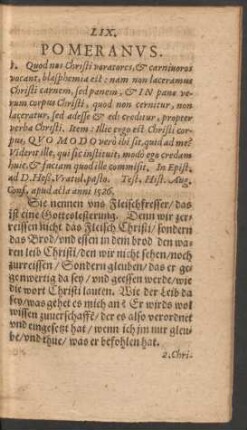 LIX.
POMERANVS.
1. Quod nos Christi voratores, & carnivoros
vocant, blasphemia est: nam non laceramus
Christi carnem, sed panem, & IN pane ve-
rum corpus Christi, quod non cernitur, non
laceratur, sed adesse & edi creditur, propter
verba Christi. Item: Illic ergo est Christi cor-
pus, QVO MODO verò ibi sit, quid ad me?
Viderit ille, qui sic instituit, modò ego credam
huic, & faciam quod ille commisit. In Epist.
ad D. Hess. Vratisl. past. Test. Hist. Aug.
Conf. apud acta anni 1526.
Sie nennen vns Fleischfresser/ das
ist eine Gotteslesterung. Denn wir zer-
reissen nicht das Fleisch Christi/ sondern
das Brod/ vnd essen in dem brod den wa-
ren leib Christi/ den wir nicht sehen/ noch
zureissen/ Sondern gleuben/ das er ge-
genwertig da sey/ vnd geessen werde/ wie
die wort Christi lauten. Wie der Leib da
sey/ was gehet es mich an? Er wirds wol
wissen zuuerschaffẽ/ der es also verordnet
vnd eingesetzt hat/ wenn ich jm nur gleu-
be/ vnd thue/ was er befohlen hat.
2. Chri-